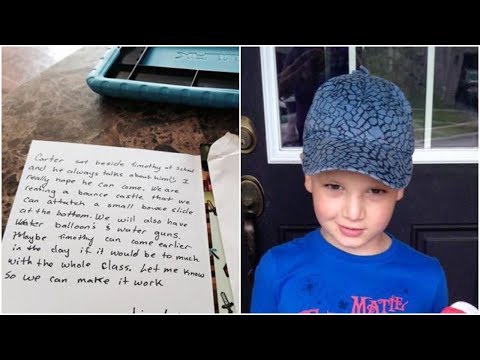 Carter sat beside Timothy at School
and he always talks about him!! I
really hope he can come. We are
renting a bounce castle that we
can attatch a small bounce slide
at the bottom. We will also have
Water balloon's & water guns.
Maybe Timothy can come earlier
in the day if it would be to much
with the whole class. Let me know
So we can make it work
MATTIE